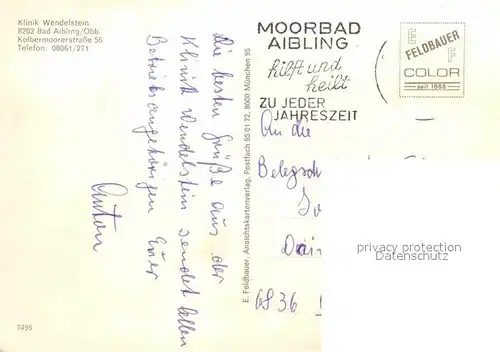 Klinik Wendelstein
8202 Bad Aibling/Obb
Kolbermoorerstraße 56
Telefon: 08061/271
MOORBAD
AIBLING
hilft und
heilt
ZU JEDER
JAHRESZEIT
E F
FELDBAUER
COLOR
seit 1888
Die besten Grüße aus der
Klinik Wendelstein sendet allen
Betriebsangehörigen Euer
Anton
E. Feldbauer, Ansichtskartenverlag, Postfach 95 01 72, 8000 München 95
An die
Belegsch
6836
privacy protection
Datenschutz
7495